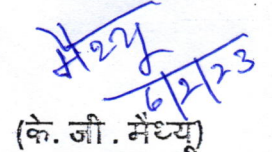 मैथ्यू
6/2/23
(के. जी. मैथ्यू)